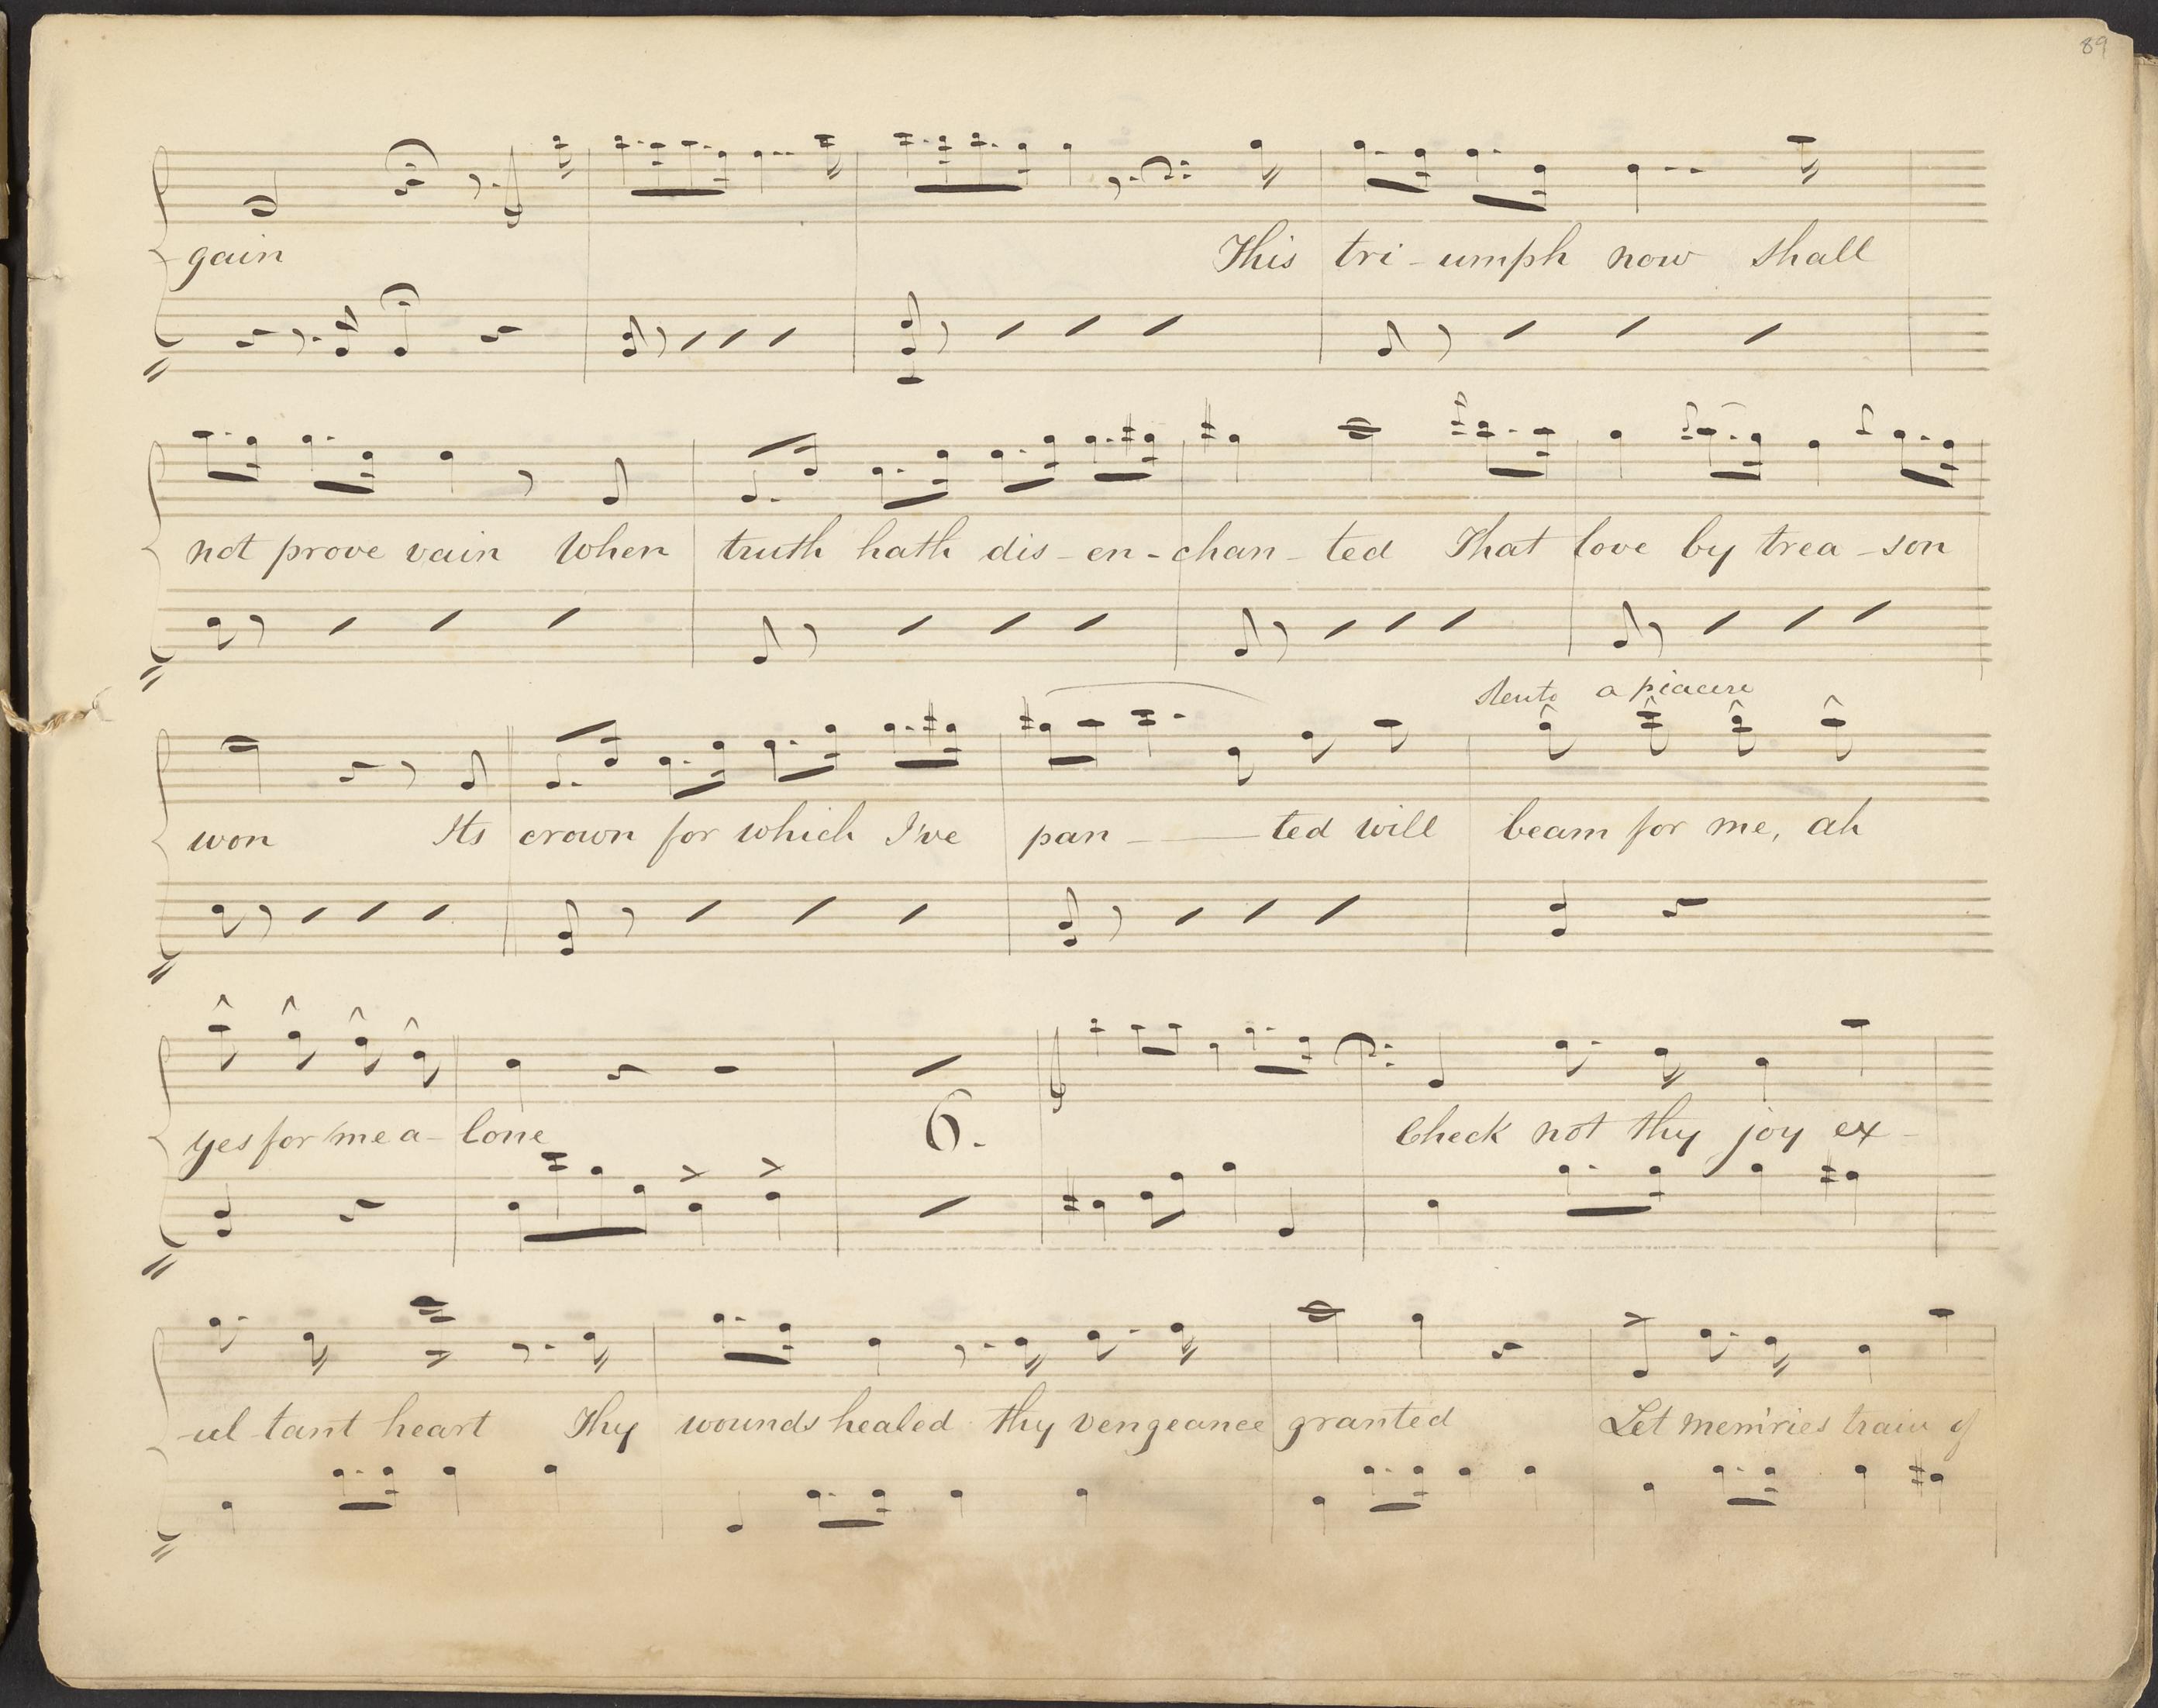 89
gain This tri-umph now shall
not prove vain When truth hath dis-en-chan-ted That love by trea-son
Stento a piacere
won Its crown for which I've pan-ted will beam for me, ah
yes for me a-lone 6. Check not thy joy ex-
-ul-tant heart Thy wounds healed thy vengeance granted Let mem'ries train of